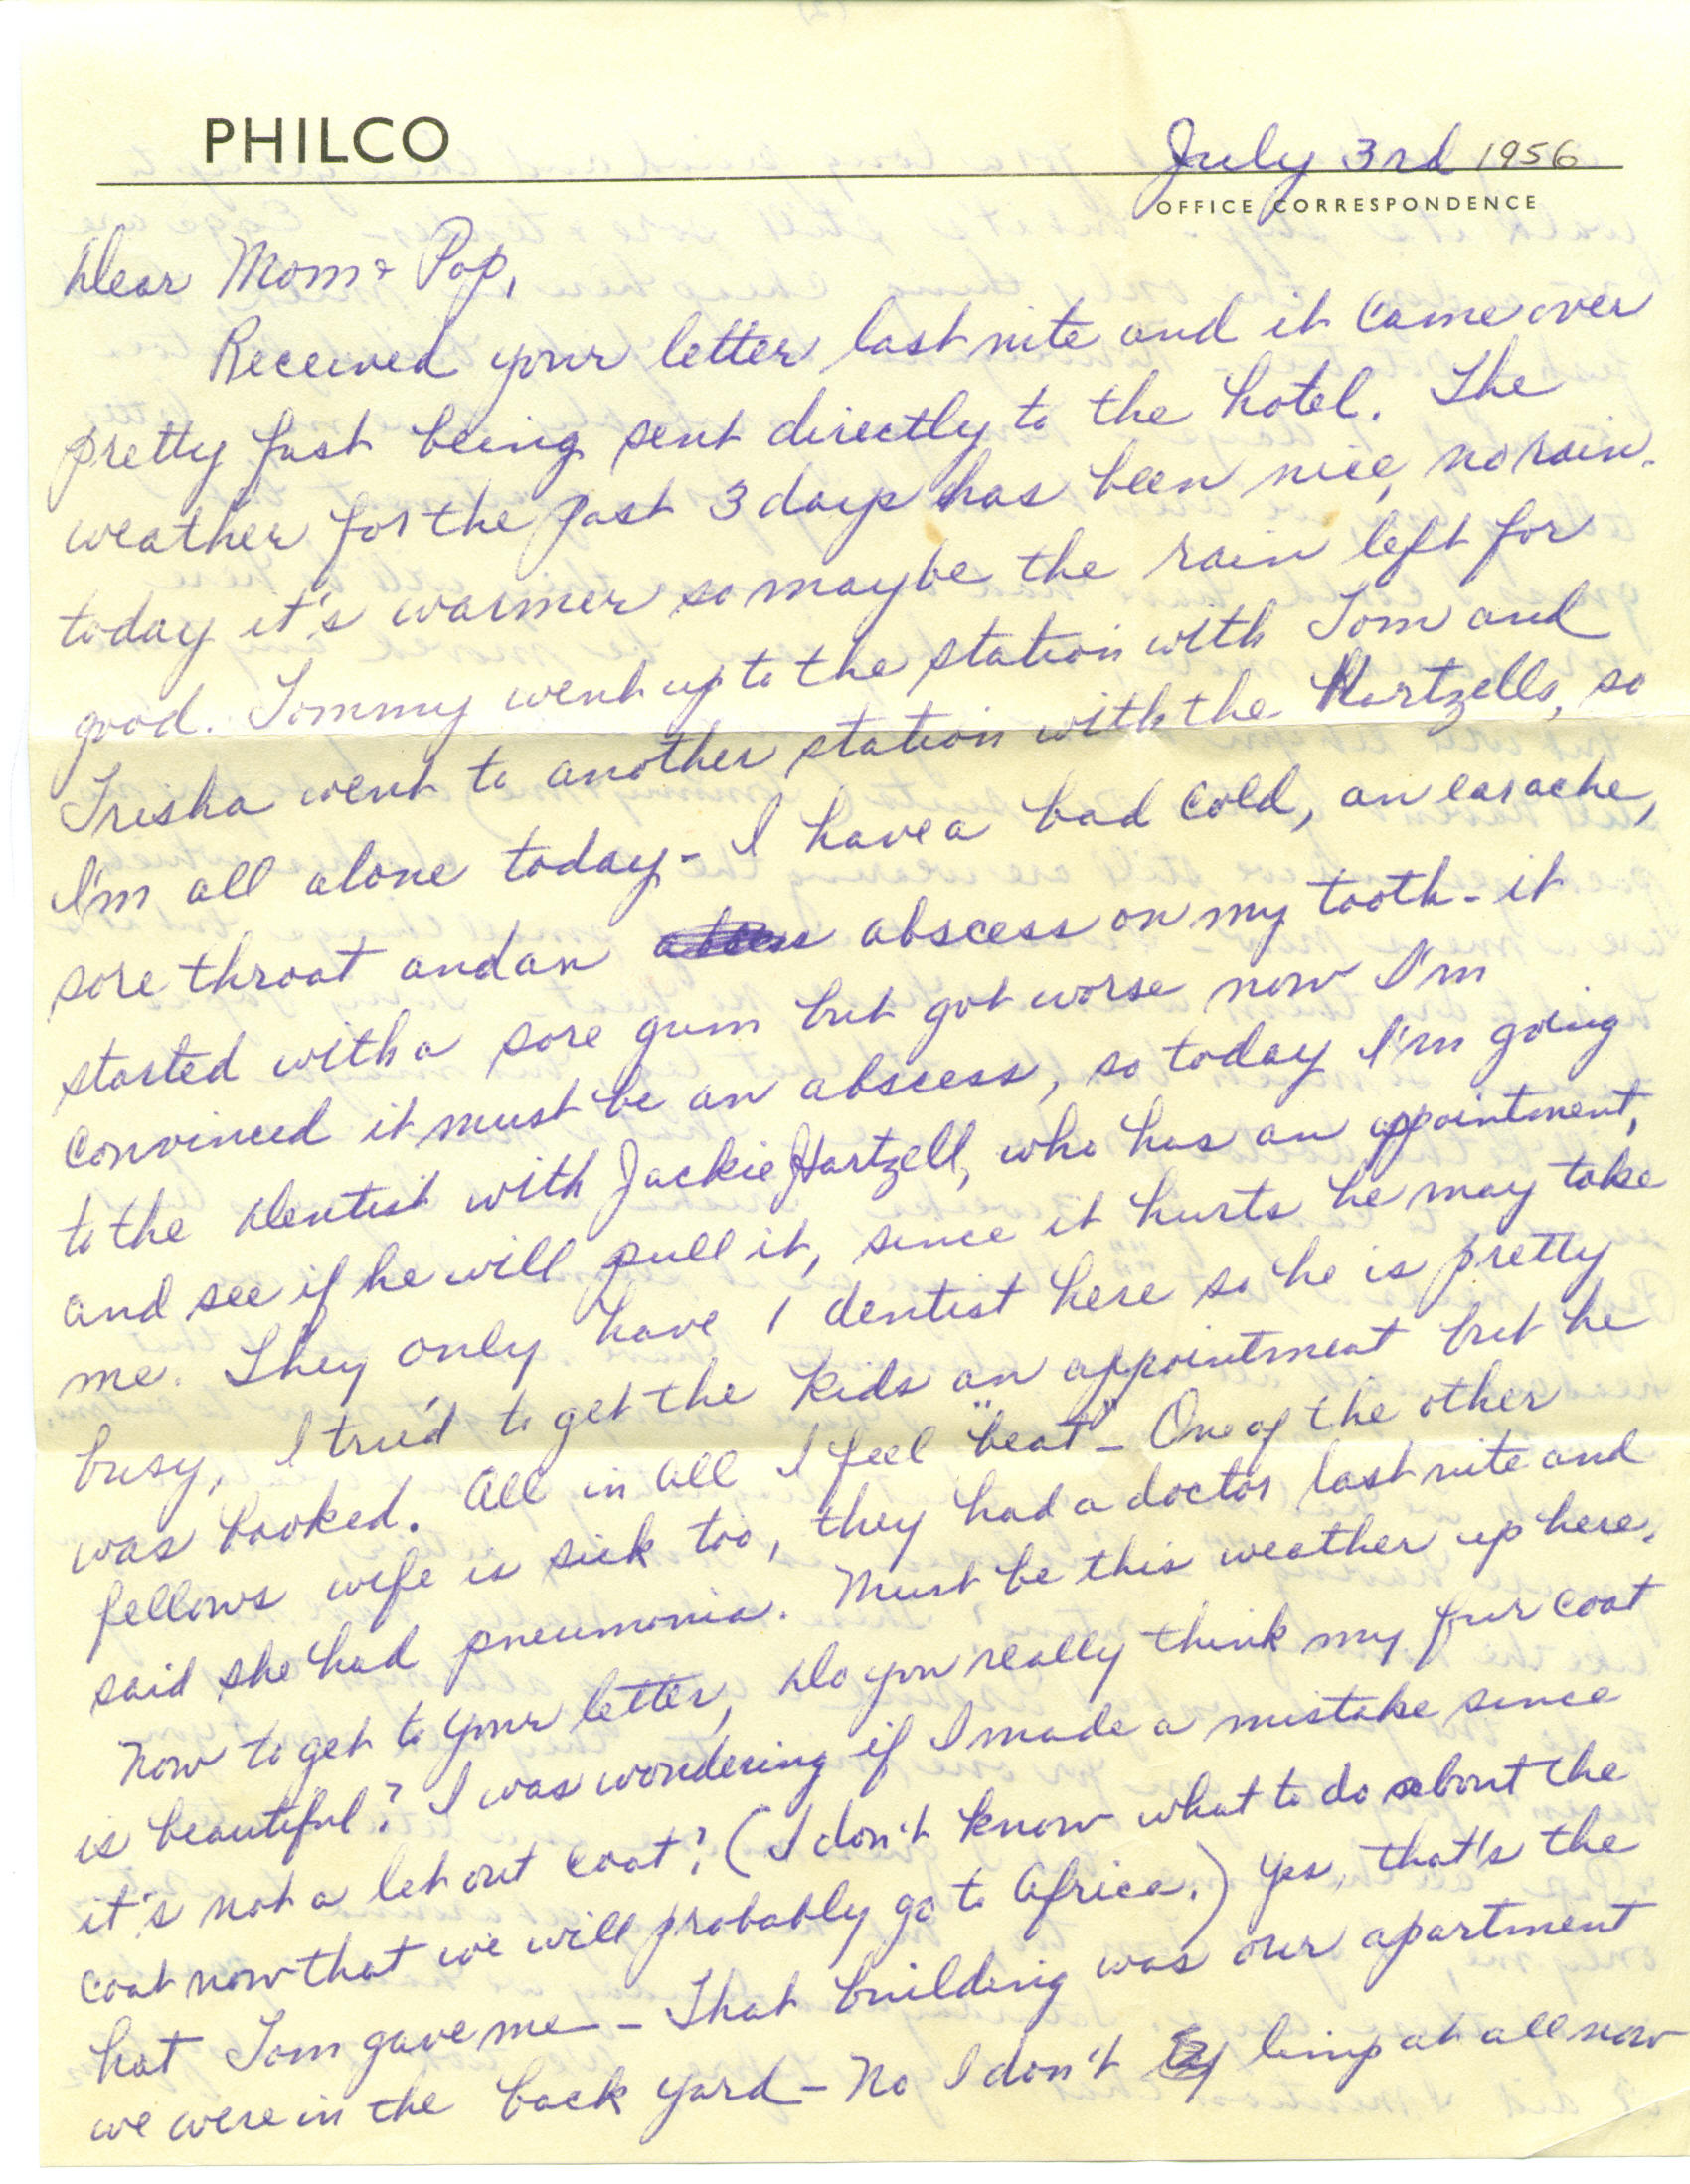 PHILCO
July 3rd 1956
OFFICE CORRESPONDENCE
Dear Mom & Pop,
Received your letter last nite and it came over
pretty fast being sent directly to the hotel. The
weather for the past 3 days has been nice, no rain.
today it's warmer so maybe the rain left for
good. Tommy went up to the station with Tom and
Trisha went to another station with the Hartzells, so
I'm all alone today - I have a bad cold, an earache,
sore throat and an abscess on my tooth - it
started with a sore gum but got worse now I'm
convinced it must be an abscess, so today I'm going
to the dentist with Jackie Hartzell, who has an appointment,
and see if he will pull it, since it hurts he may take
me. They only have 1 dentist here so he is pretty
busy, I tried to get the kids an appointment but he
was booked. All in all I feel "beat" - One of the other
fellows wife is sick too, they had a doctor last nite and
said she had pneumonia. Must be this weather up here.
Now to get to your letter, Do you really think my fur coat
is beautiful? I was wondering if I made a mistake since
it's not a let out coat? (I don't know what to do about the
coat now that we will probably go to Africa.) Yes, that's the
hat Tom gave me - That building was our apartment
we were in the back yard - No I don't limp at all now